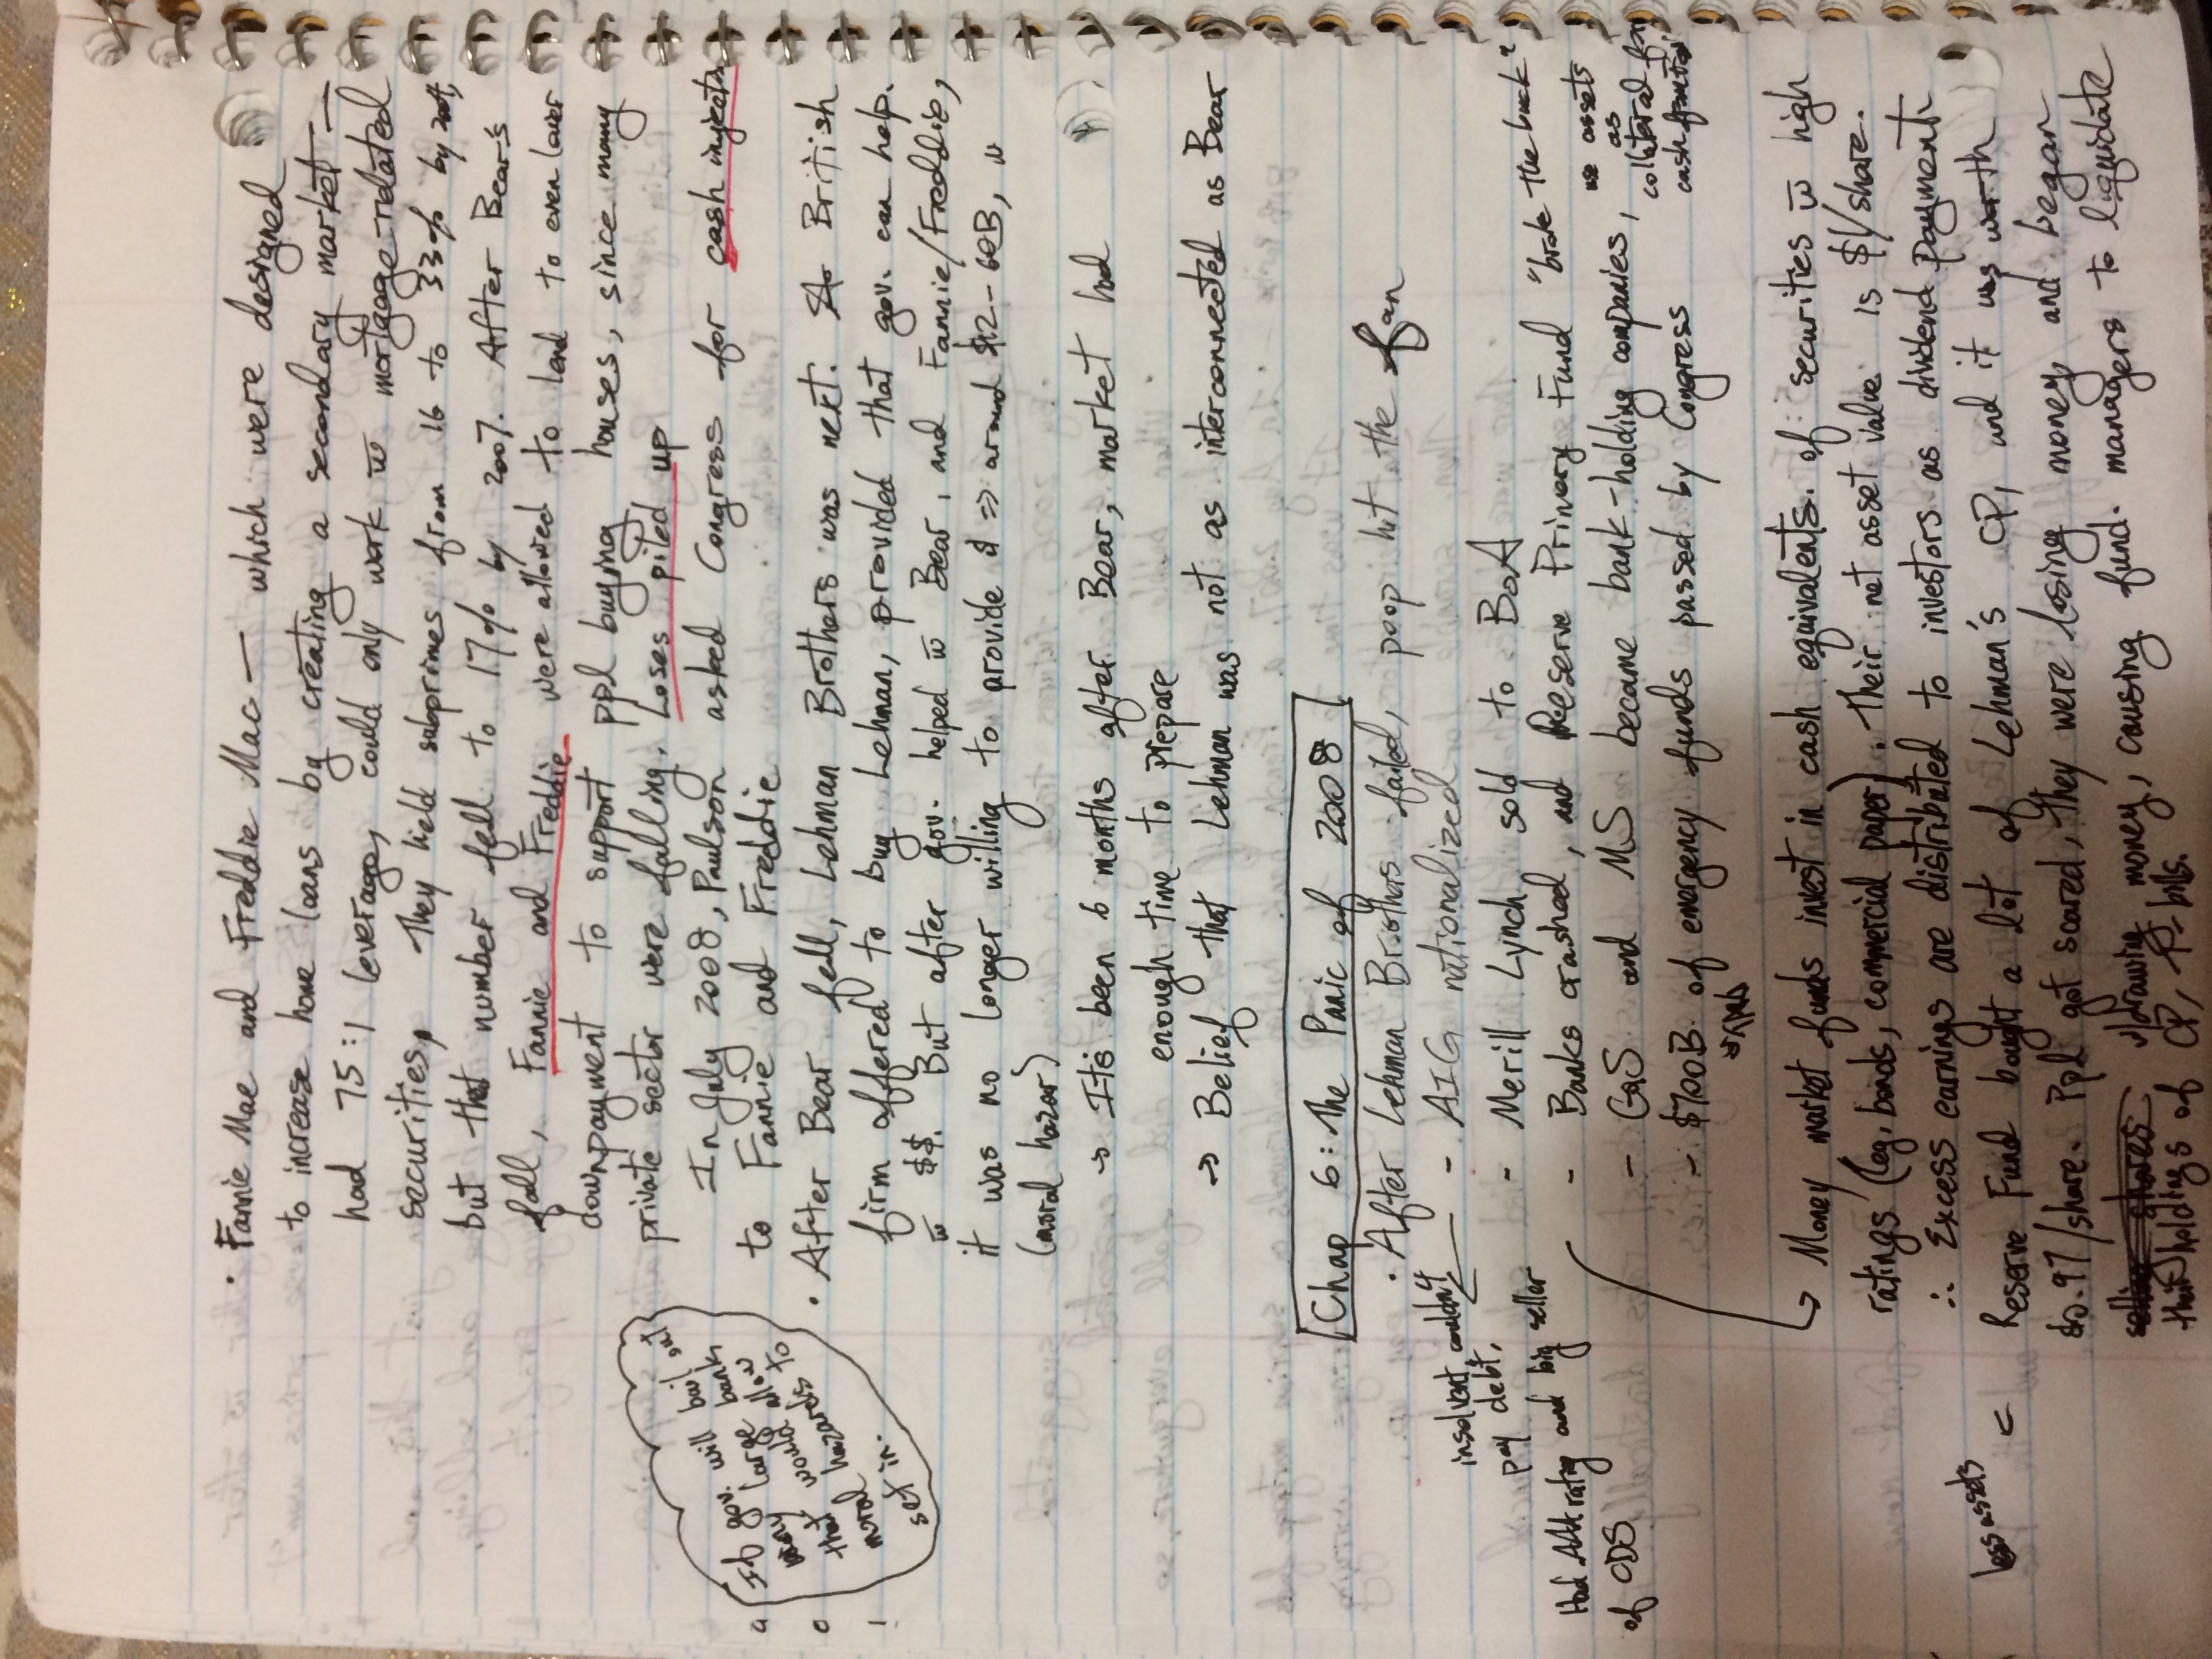 • Fannie Mae and Freddie Mac — which were designed
to increase home loans by creating a secondary market —
had 75:1 leverage, could only work w̄ mortgage-related
securities, They held subprimes from 16 to 33% by
but that number fell to 17% by 2007. After Bear's
fall, Fannie and Freddie were allowed to lend to even lower
downpayment to support ppl buying houses, since many
private sector were falling. Loses piled up
In July 2008, Paulson asked Congress for cash injection
to Fannie and Freddie
If gov. will bail out
many large bank,
that would allow
moral hazards to
set in.
• After Bear fell, Lehman Brothers was next. A British
firm offered to buy Lehman, provided that gov. can help.
w̄ $$. But after gov. helped w̄ Bear, and Fannie/Freddie,
it was no longer willing to provide $ => around $12-60B,
(moral hazar)
→ It's been 6 months after Bear, market had
enough time to prepare
→ Belief that Lehman was not as interconnected as Bear
Chap 6: The Panic of 2008
• After Lehman Brothers failed, poop hit the fan
- AIG nationalized
insolvent, couldn't
pay debt,
Had AAA rating and big seller
of CDS
- Merill Lynch sold to BoA
- Banks crashed, and Reserve Primary Fund "broke the buck"
- G&S and MS became bank-holding companies,
use assets
as
collateral for
cash
- $700B of emergency funds passed by Congress
→ Money market funds invest in cash equivalents. of securities w̄ high
ratings (eg. bonds, commercial paper). Their net asset value is $1/share.
∴ Excess earnings are distributed to investors as dividend payment.
less assets <= Reserve Fund bought a lot of Lehman's CP, and it was worth
$0.97/share. Ppl got scared, they were losing money, and began
selling shares w/drawing money, causing fund managers to liquidate
their holdings of CP, T-bills.